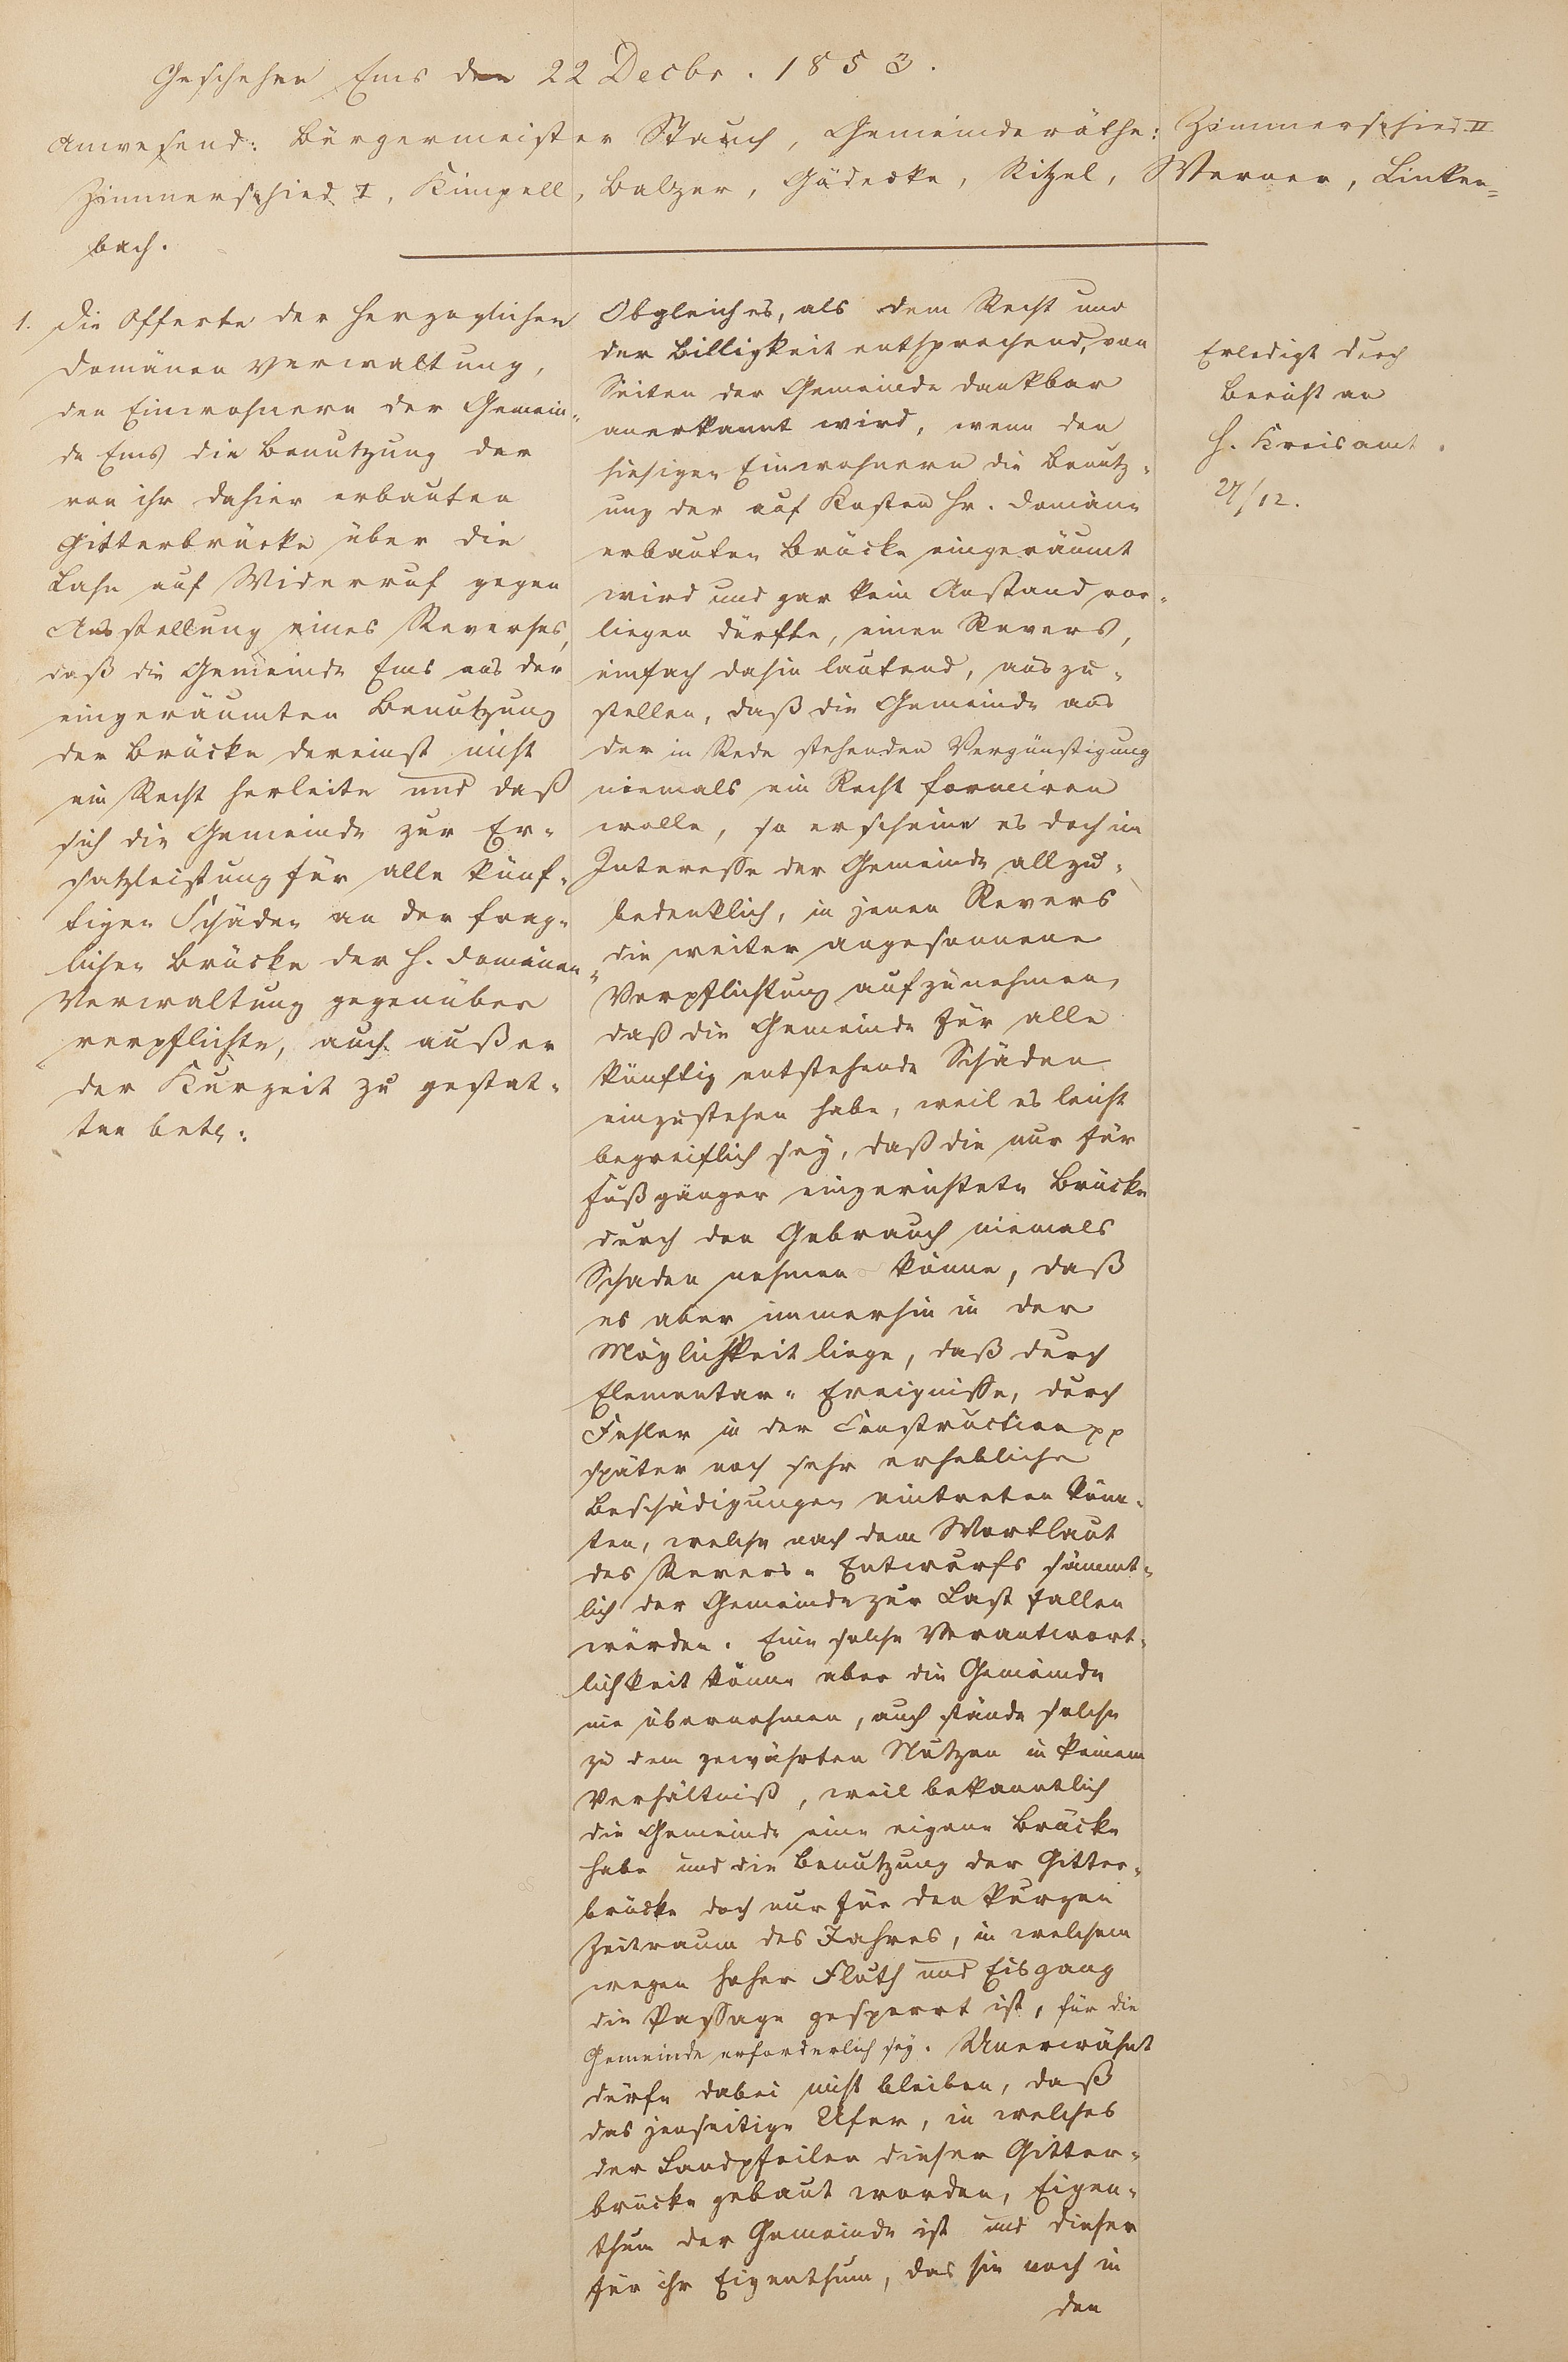 Geschehen Ems den 22 Decbr. 1853.
Anwesend: Bürgermeister Stauch, Gemeinderäthe: Zimmerschied II
Zimmerschied I, Kimpell, Balzer, Gödecke, Ritzel, Werner, Linken-
bach.
1. Die Offerte der Herzoglichen
Domänen Verwaltung,
den Einwohnern der Gemein-
de Ems die Benutzung der
von ihr dahier erbauten
Gitterbrücke über die
Lahn auf Widerruf gegen
Ausstellung eines Reverses,
daß die Gemeinde Ems aus der
eingeräumten Benutzung
der Brücke dereinst nicht
ein Recht herleite und daß
sich die Gemeinde zur Er-
satzleistung für alle künf-
tigen Schäden an der frag-
lichen Brücke der H. Domänen-
Verwaltung gegenüber
verpflichte, auch außer
der Kurzeit zu gestat-
ten betr:
Obgleich es, als dem Recht und
der Billigkeit entsprechend, von
Seiten der Gemeinde dankbar
anerkannt wird, wenn den
hiesigen Einwohnern die Benutz-
ung der auf Kosten Hr. Domäne
erbauten Brücke eingeräumt
wird und gar kein Anstand vor-
liegen dürfte, einen Revers,
einfach dahin lautend, auszu-
stellen, daß die Gemeinde aus
der in Rede stehenden Vergünstigung
niemals ein Recht formiren
wolle, so erscheine es doch im
Interesse der Gemeinde allzu-
bedenklich, in jenen Revers
die weiter angesonnene
Verpflichtung aufzunehmen,
daß die Gemeinde für alle
künftig entstehende Schäden
einzustehen habe, weil es leicht
begreiflich sey, daß die nur für
Fußgänger eingerichtete Brücke
durch den Gebrauch niemals
Schaden nehmen könne, daß
es aber immerhin in der
Möglichkeit liege, daß durch
Elementar-Ereignisse, durch
Fehler in der Construction pp
später noch sehr erhebliche
Beschädigungen eintreten könn-
ten, welche nach dem Wortlaut
des Revers-Entwurfs sämmt-
lich der Gemeinde zur Last fallen
würden. Eine solche Verantwort-
lichkeit könne aber die Gemeinde
nie übernehmen, auch stände solche
zu dem gewährten Nutzen in keinem
Verhältniß, weil bekanntlich
die Gemeinde eine eigene Brücke
habe und die Benutzung der Gitter-
brücke doch nur für den kurzen
Zeitraum des Jahres, in welchem
wegen hoher Fluth und Eisgang
die Passage gesperrt ist, für die
Gemeinde erforderlich sey. Unerwähnt
dürfe dabei nicht bleiben, daß
das jenseitige Ufer, in welches
der Landpfeiler dieser Gitter-
brücke gebaut worden, Eigen-
thum der Gemeinde ist und dieser
für ihr Eigenthum, das sie noch in
den
Erledigt durch
Bericht an
H. Kreisamt.
27/12.